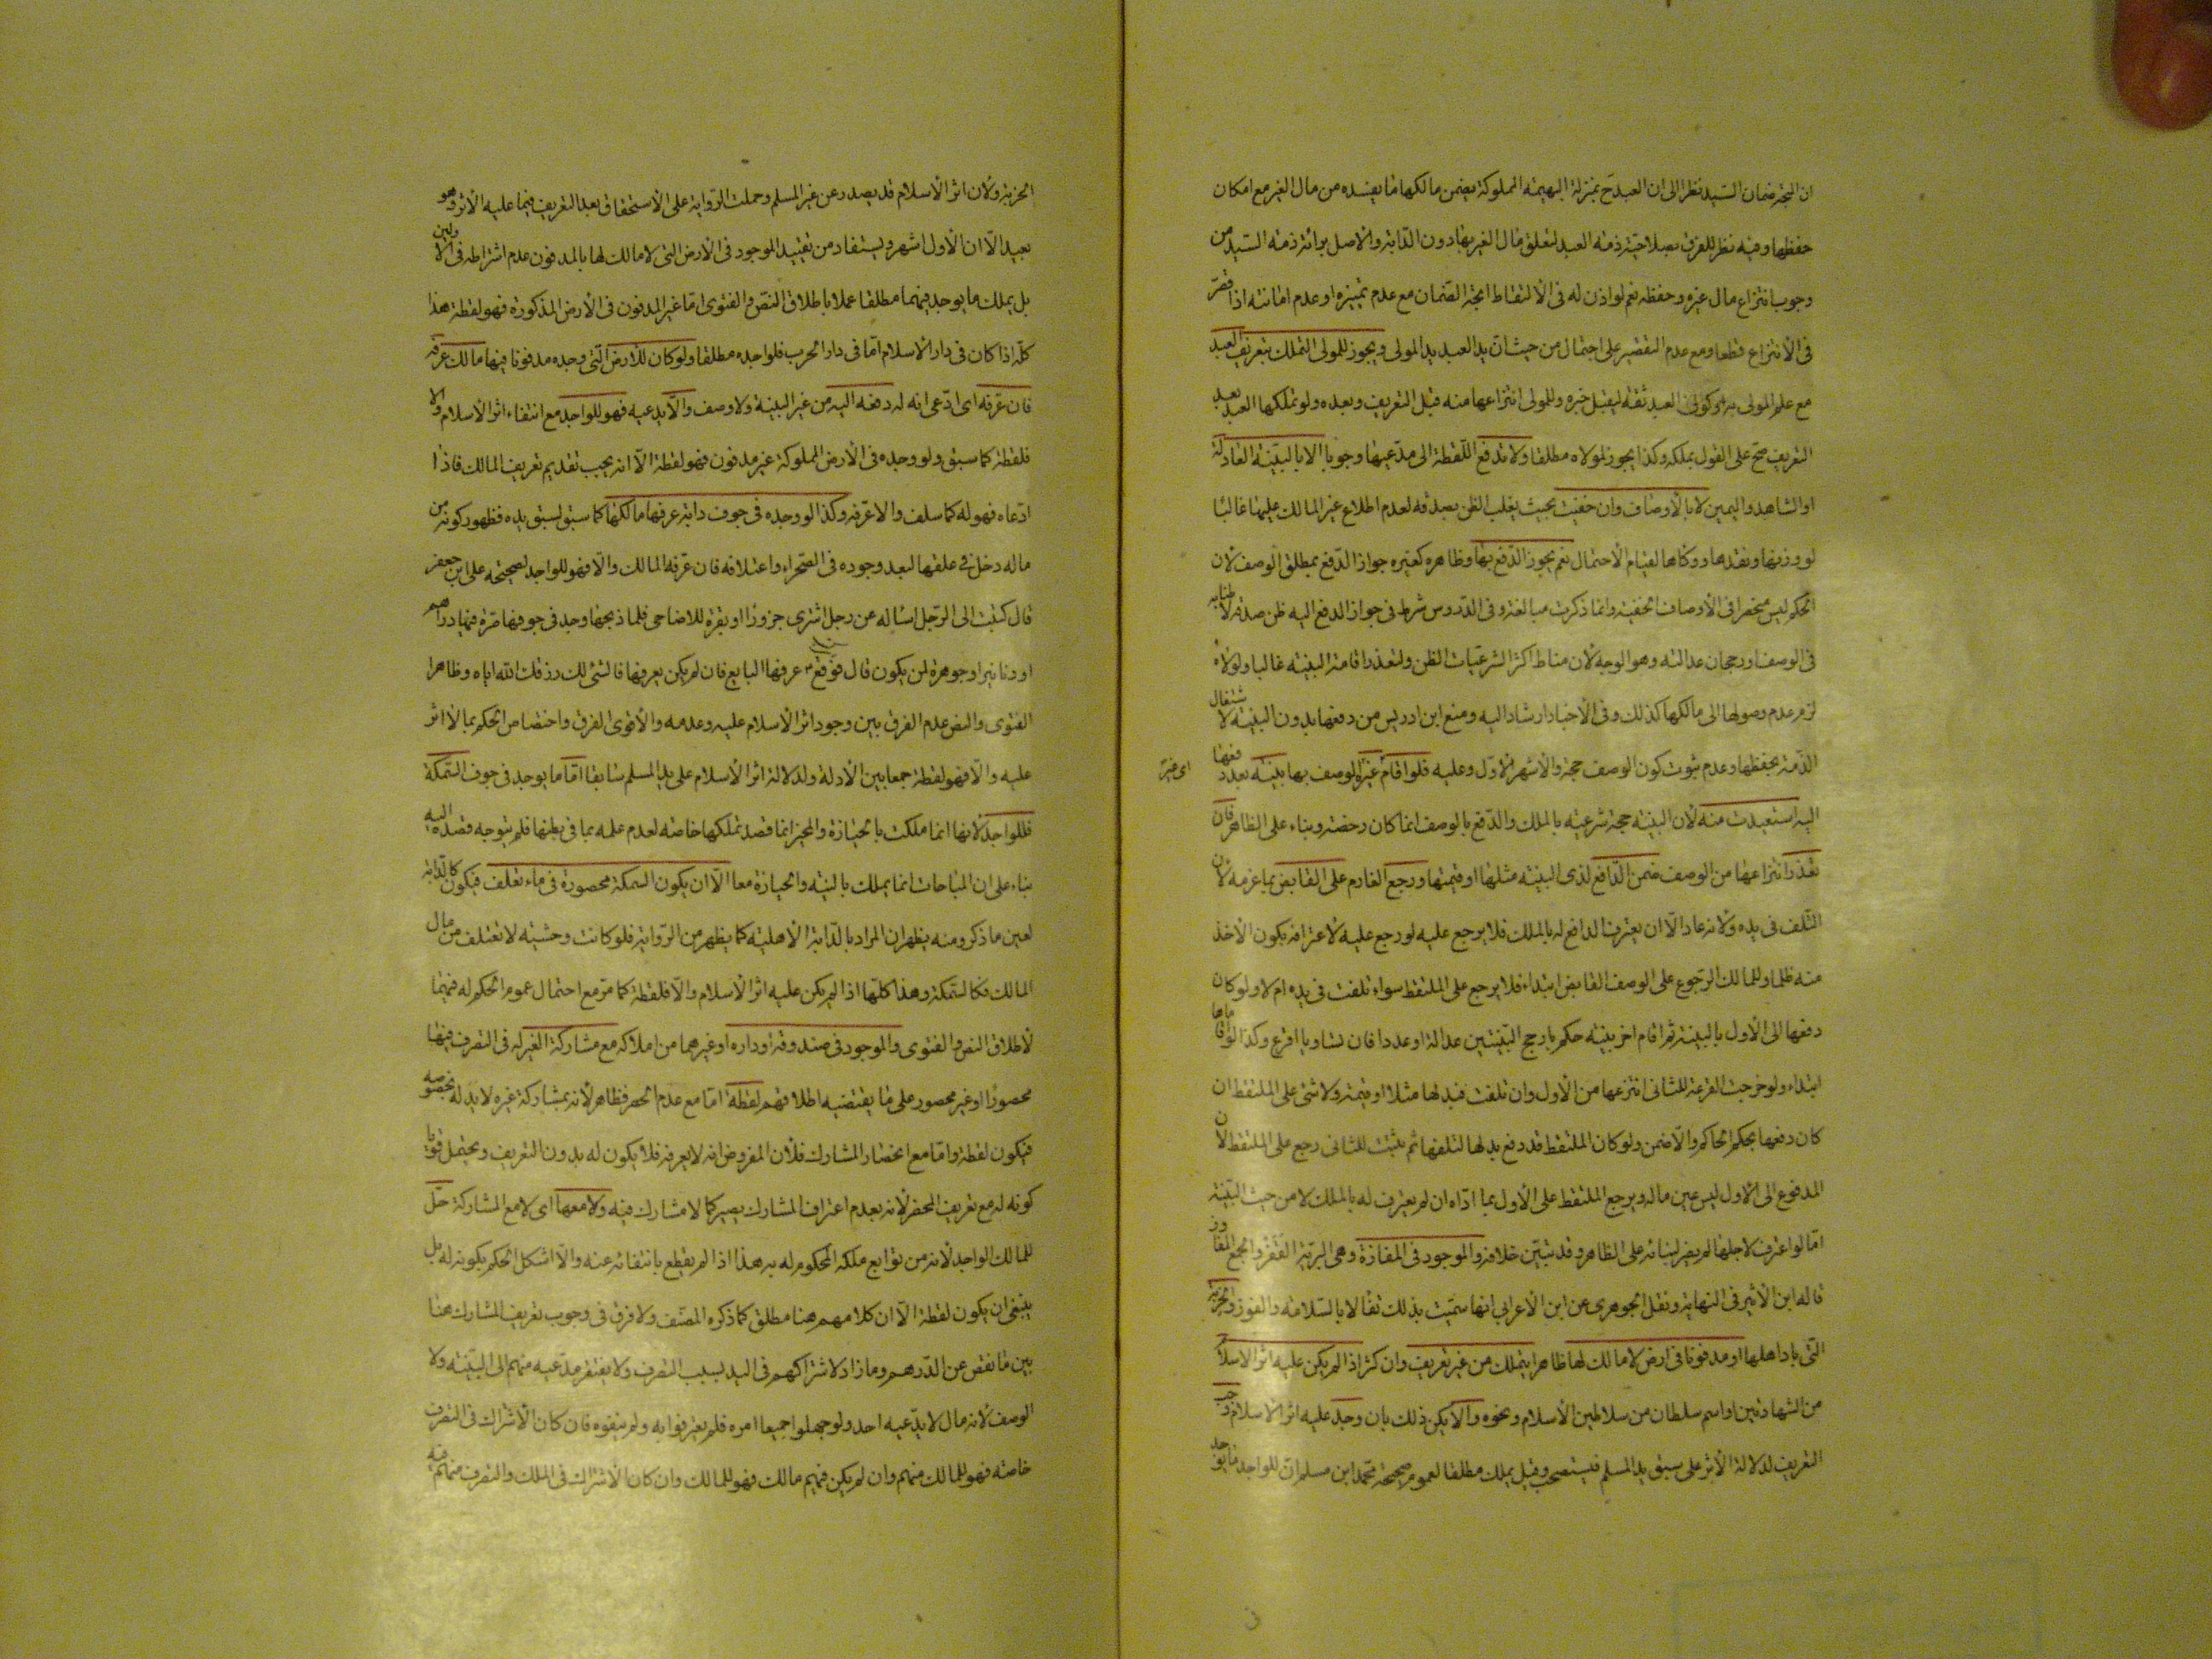 ان اتجه ضمان السيد نظرا الى ان العبد ح بمنزلة البهيمة المملوكة يضمن مالكها ما يفسده من مال الغير مع امكان
حفظها وفيه نظر للفرق بصلاحية ذمة العبد لتعلق مال الغير بها دون الدابة والاصل برائة ذمة السيد من
وجوب انتزاع مال غيره وحفظه نعم لو اذن له فى الالتقاط اتجه الضمان مع عدم تميزه او عدم امانته اذا قصر
فى الانتزاع قطعا ومع عدم التقصير على احتمال من حيث ان يد العبد يد المولى ويجوز للمولى التملك بتعريف العبد
مع علم المولى به او كون العبد ثقة ليقبل خبره وللمولى انتزاعها منه قبل التعريف وبعده ولو تملكها العبد بعد
التعريف صح على القول بملكه وكذا يجوز لمولاه مطلقا ولا تدفع اللقطة الى مدعيها وجوبا الا بالبينة العادلة
او الشاهد واليمين لا بالاوصاف وان خفيت بحيث يغلب الظن بصدقه لعدم اطلاع غير المالك عليها غالبا
لو وزنها ونقدها ووكاها لقيام الاحتمال نعم يجوز الدفع بها وظاهره كغيره جواز الدفع بمطلق الوصف لان
الحكم ليس منحصرا فى الاوصاف الخفية وانما ذكرت مبالغة وفى الدروس شرط فى جواز الدفع اليه ظن صدقه لاطنابه
فى الوصف او رجحان عدالته وهو الوجه لان مناط اكثر الشرعيات الظن ولتعذر اقامة البينة غالبا ولولاه
لزم عدم وصولها الى مالكها كذلك وفى الاخبار ارشاد اليه ومنع ابن ادريس من دفعها بدون البينة لاشتغال
الذمة بحفظها وعدم ثبوت كون الوصف حجة والاشهر الاول وعليه فلو اقام غيره اى غير الوصف بها بينة بعد دفعها
اليه استعيدت منه لان البينة حجة شرعية بالملك والدفع بالوصف انما كان رخصة وبناء على الظاهر فان
تعذر انتزاعها من الوصف ضمن الدافع لذى البينة مثلها او قيمتها ورجع الغارم على القابض بما غرمه لان
التلف فى يده ولانه عاد الا ان يعترف الدافع له بالملك فلا يرجع عليه لو رجع عليه لاعترافه بكون الاخذ
منه ظلما وللمالك الرجوع على الوصف القابض ابتداء فلا يرجع على الملتقط سواء تلفت فى يده ام لا ولو كان
دفعها الى الاول بالبينة ثم اقام اخر بينة حكم بارجح البينتين عدالة او عددا فان تساويا اقرع وكذا لو اقاماها
ابتداء ولو خرجت القرعة للثانى انتزعها من الاول وان تلفت فبدلها مثلا او قيمة ولا شئ على الملتقط ان
كان دفعها بحكم الحاكم والا ضمن ولو كان الملتقط قد دفع بدلها لتلفها ثم ثبتت للثانى رجع على الملتقط لان
المدفوع الى الاول ليس عين ماله ويرجع الملتقط على الاول بما اداه ان لم يعترف له بالملك لا من حيث البينة
اما لو اعترف لاجلها لم يضر لبنائه على الظاهر وقد تبين خلافه والموجود فى المفازة وهى البرية القفر والجمع المفاوز
قاله ابن الاثير فى النهاية ونقل الجوهرى عن ابن الاعرابى انها سميت بذلك تفالا بالسلامة والفوز والخربة
التى باد اهلها او مدفونا فى ارض لا مالك لها ظاهرا يتملك من غير تعريف وان كثر اذا لم يكن عليه اثر الاسلام
من الشهادتين او اسم سلطان من سلاطين الاسلام ونحوه والا يكن ذلك بان وجد عليه اثر الاسلام وجب
التعريف لدلالة الاثر على سبق يد المسلم فيستصحب وقيل يملك مطلقا لعموم صحيحة محمد ابن مسلم ان للواجد ما يوجد
الخربة ولان اثر الاسلام قد يصدر عن غير المسلم وحملت الرواية على الاستحقاق بعد التعريف فيما عليه الاثر وهو
بعيد الا ان الاول اشهر ويستفاد من تقييد الموجود فى الارض التى لا مالك لها بالمدفون عدم اشتراطه فى الاولين
بل يملك ما يوجد فيهما مطلقا عملا باطلاق النص والفتوى اما غير المدفون فى الارض المذكورة فهو لقطة هذا
كله اذا كان فى دار الاسلام اما فى دار الحرب فلواجده مطلقا ولو كان للارض التى وجده مدفونا فيها مالك عرفه
فان عرفه اى ادعى انه له دفعه اليه من غير البينة ولا وصف والا يدعيه فهو للواجد مع انتفاء اثر الاسلام والا
فلقطة كما سبق ولو وجده فى الارض المملوكة غير مدفون فهو لقطة الا انه يجب تقديم تعريف المالك فاذا
ادعاه فهو له كما سلف والا عرفه وكذا لو وجده فى جوف دابة عرفها مالكها كما سبق لسبق يده فظهور كونه من
ماله دخل فى علفها لبعد وجوده فى الصحراء واعتلافه فان عرفه المالك والا فهو للواجد لصحيحة على ابن جعفر
قال كتبت الى الرجل اساله عن رجل اشترى جزورا او بقرة للاضاحى فلما ذبحها وجد فى جوفها صرة فيها دراهم
او دنانير او جوهرة لمن يكون قال فوقع ع عرفها البايع فان لم يكن يعرفها فالشئ لك رزقك الله اياه وظاهر
الفتوى والنص عدم الفرق بين وجود اثر الاسلام عليه وعدمه والاقوى الفرق واختصاص الحكم بما لا اثر
عليه والا فهو لقطة جمعا بين الادلة ولدلالة اثر الاسلام على يد المسلم سابقا اما ما يوجد فى جوف السمكة
فللواجد لانها انما ملكت بالحيازة والمحيز انما قصد تملكها خاصة لعدم علمه بما فى بطنها فلم يتوجه قصده اليه
بناء على ان المباحات انما يملك بالنية والحيازة معا الا ان يكون السمكة محصورة فى ماء تعلف فيكون كالدابة
لعين ما ذكر ومنه يظهر ان المراد بالدابة الاهلية كما يظهر من الرواية فلو كانت وحشية لا تعتلف من مال
المالك فكالسمكة وهذا كلها اذا لم يكن عليه اثر الاسلام والا فلقطة كما مر مع احتمال عموم الحكم له فيهما
لاطلاق النص والفتوى والموجود فى صندوقه او داره او غيرهما من املاكه مع مشاركة الغير له فى التصرف فيها
محصورا او غير محصور على ما يقتضيه اطلاقهم لقطة اما مع عدم الحصر فظاهر لانه بمشاركة غيره لا يد له بخصوصه
فيكون لقطة واما مع انحصار المشارك فلان المفروض انه لا يعرفه فلا يكون له بدون التعريف ويحتمل قويا
كونه له مع تعريف المنحصر لانه بعدم اعتراف المشارك يصير كما لا مشارك فيه ولا معها اى لا مع المشاركة حل
للمالك الواجد لانه من توابع ملكه المحكوم له به هذا اذا لم يقطع بانتفائه عنه والا اشكل الحكم بكونه له بل
ينبغى ان يكون لقطة الا ان كلامهم هنا مطلق كما ذكره المصنف ولا فرق فى وجوب تعريف المشارك هنا
بين ما نقص عن الدرهم وما زاد لاشتراكهم فى اليد بسبب التصرف ولا يفتقر مدعيه منهم الى البينة ولا
الوصف لانه مال لا يدعيه احد ولو جهلوا جميعا امره فلم يعترفوا به ولم ينفوه فان كان الاشتراك فى التصرف
خاصة فهو للمالك منهم وان لم يكن فيهم مالك فهو للمالك وان كان الاشتراك فى الملك والتصرف